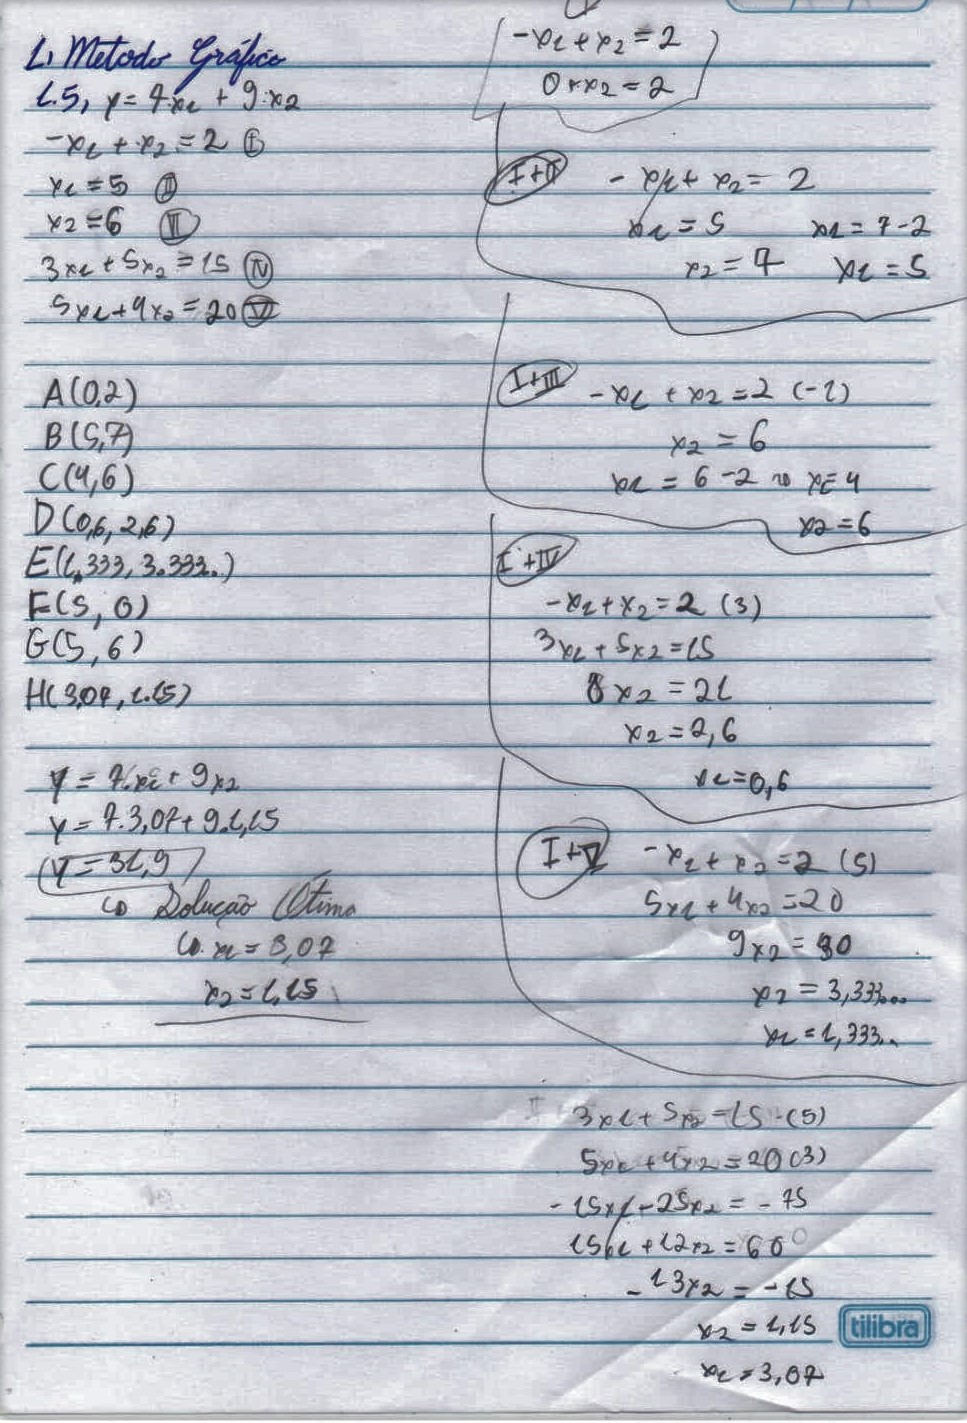 1. Metodo Gráfico
1.5, y = 7x1 + 9.x2
-x1 + x2 = 2 I
x1 = 5 II
x2 = 6 III
3x1 + 5x2 = 15 IV
5x1 + 4x2 = 20 VI
A(0,2)
B(5,7)
C(4,6)
D(0,6, 2,6)
E(1,333, 3.333..)
F(5, 0)
G(5, 6)
H(3,07, 1.15)
y = 7.x1 + 9x2
y = 7.3,07 + 9.1,15
y = 31,9
Solução Ótima
x1 = 3,07
x2 = 1,15
-x1 + x2 = 2
0 + x2 = 2
I+II
-x1 + x2 = 2
x1 = 5 x1 = 7-2
x2 = 7 x1 = 5
I+III
-x1 + x2 = 2 (-1)
x2 = 6
x1 = 6 - 2 x1 = 4
x2 = 6
I+IV
-x1 + x2 = 2 (3)
3x1 + 5x2 = 15
8x2 = 21
x2 = 2,6
x1 = 0,6
I+V -x1 + x2 = 2 (5)
5x1 + 4x2 = 20
9x2 = 30
x2 = 3,333...
x1 = 1,333..
3x1 + 5x2 = 15 -(5)
5x1 + 4x2 = 20 (3)
-15x1 - 25x2 = -75
15x1 + 12x2 = 60
-13x2 = -15
x2 = 1,15
x1 = 3,07
tilibra